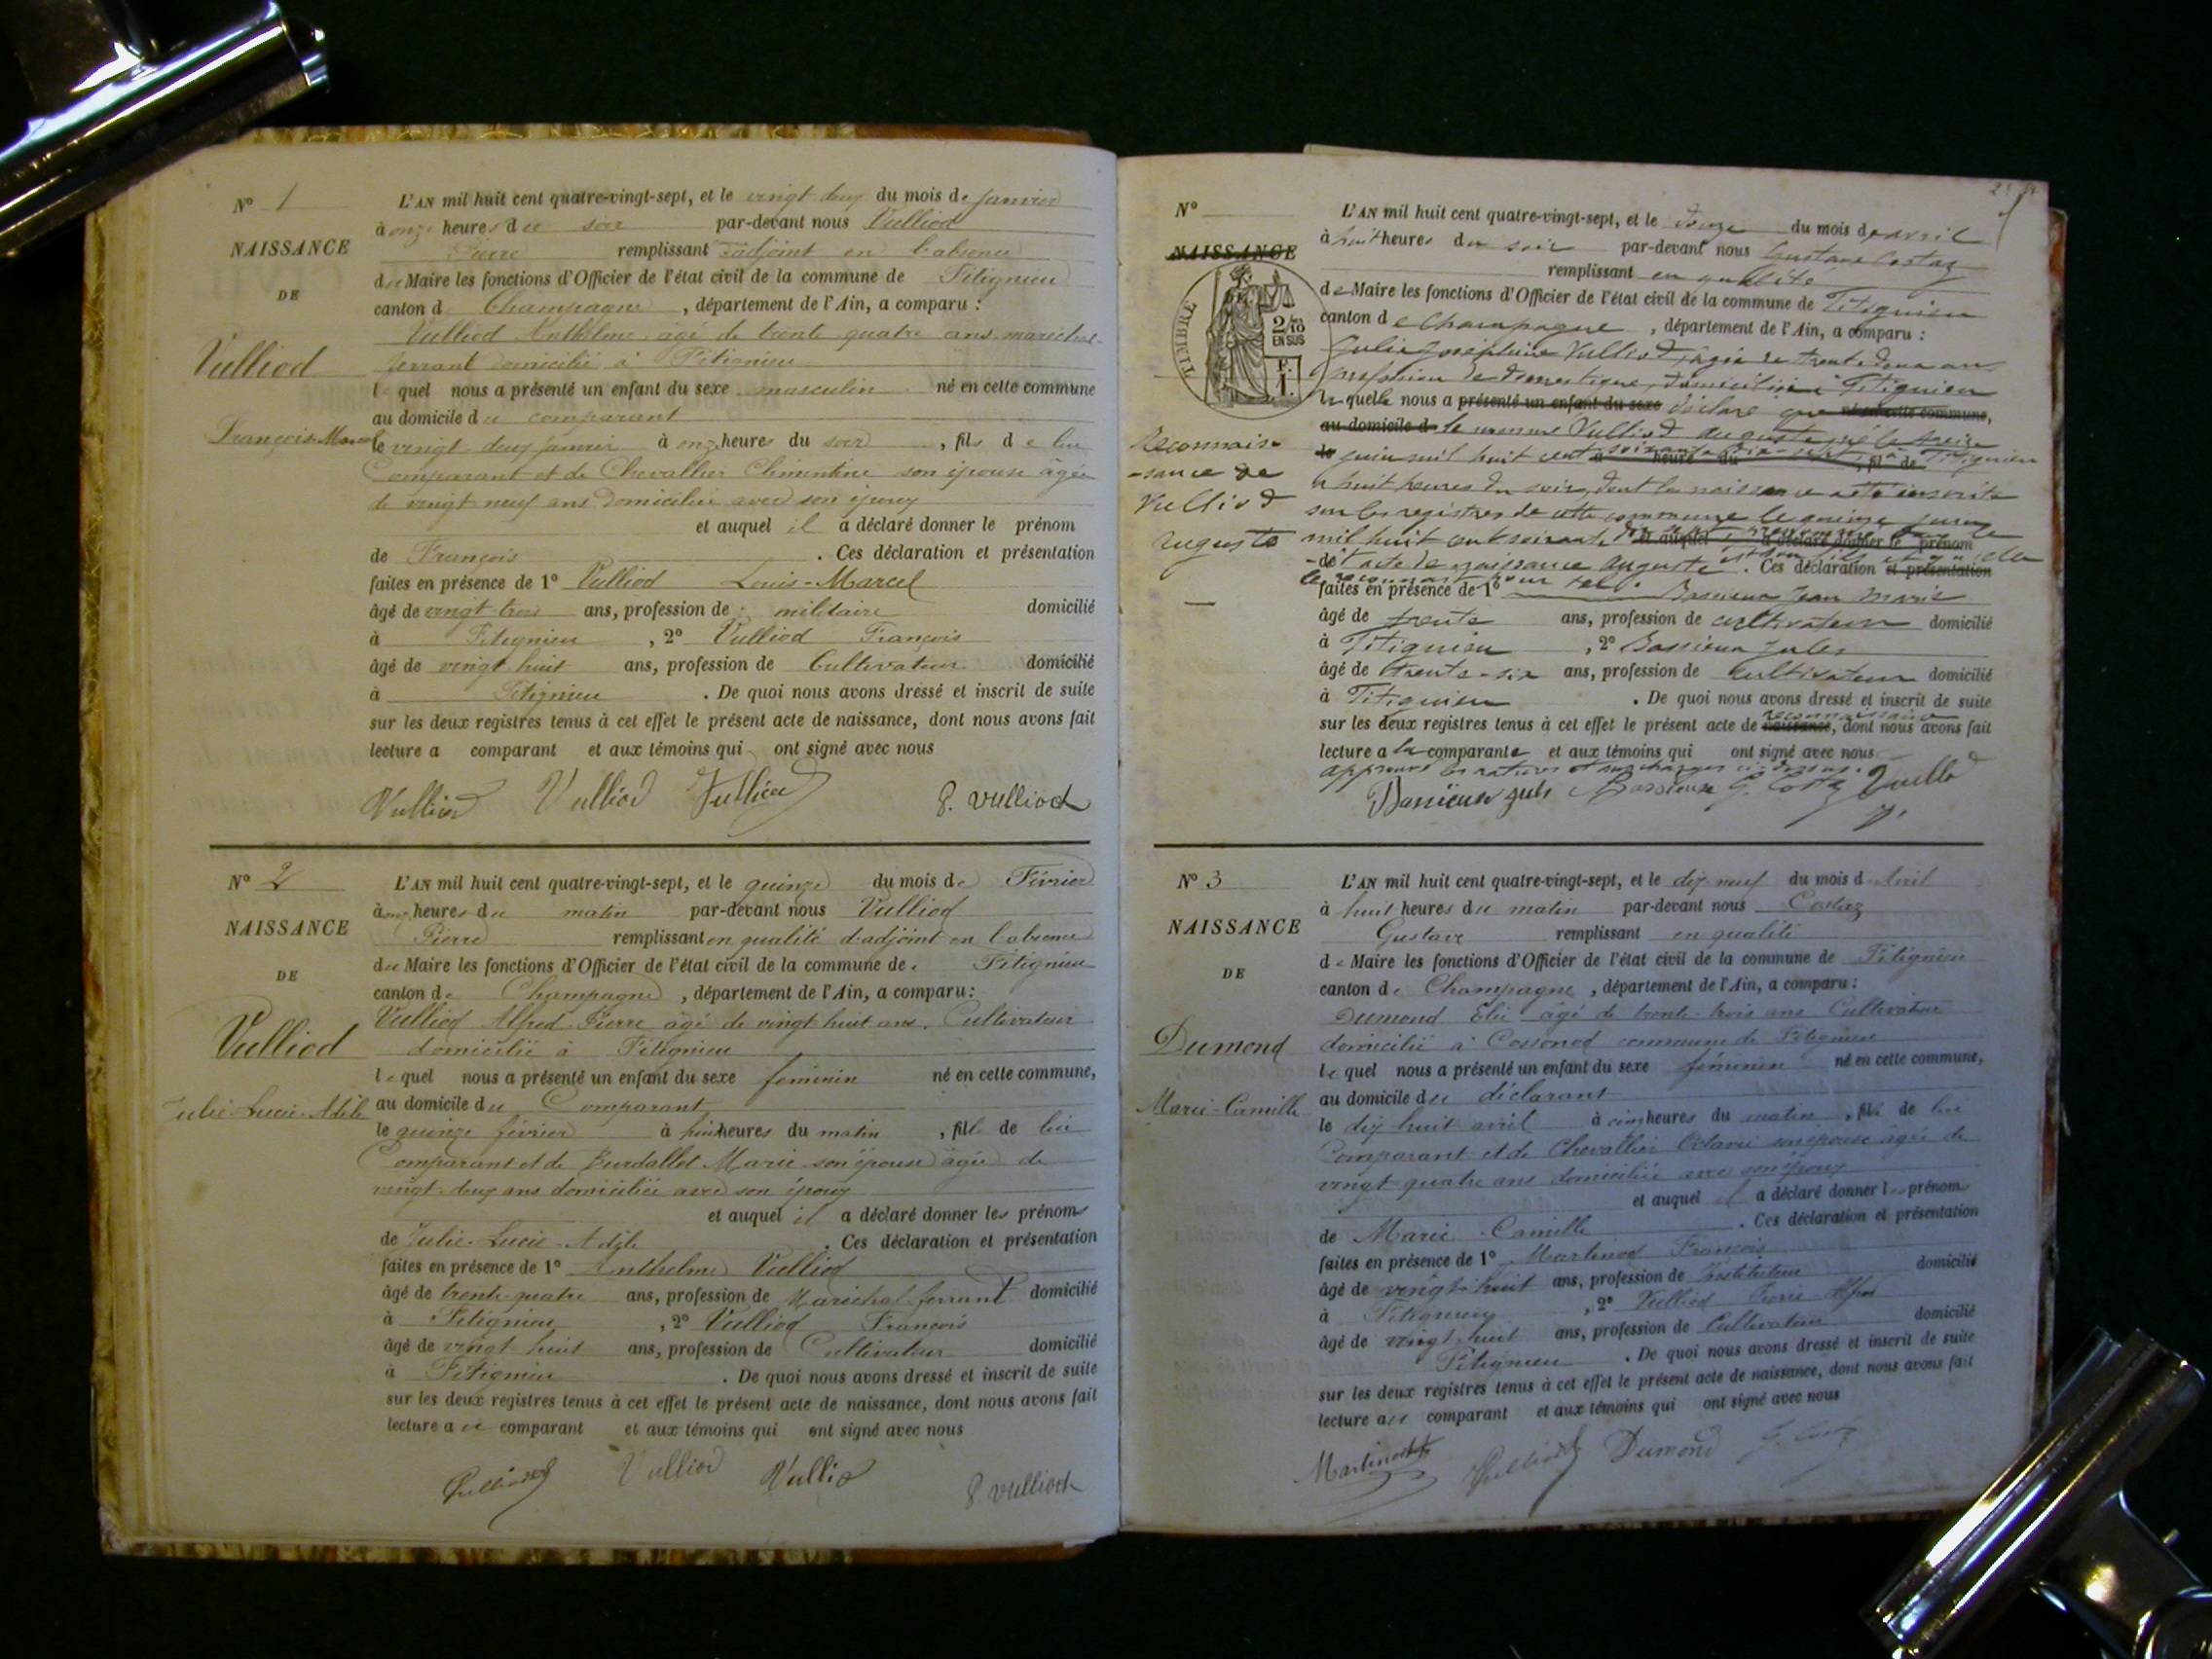 N° 1
NAISSANCE
DE
Vulliod
François-Marcel
L'AN mil huit cent quatre-vingt-sept, et le vingt deux du mois de janvier
à onze heures du soir par-devant nous Vulliod
Pierre remplissant adjoint en l'absence
du Maire les fonctions d'Officier de l'état civil de la commune de Fitignieu
canton de Champagne, département de l'Ain, a comparu :
Vulliod Anthelme âgé de trente quatre ans maréchal-
ferrant domicilié à Fitignieu
lequel nous a présenté un enfant du sexe masculin né en cette commune
au domicile du comparant
le vingt deux janvier à onze heures du soir, fils de lui
Comparant et de Chevallier Clémentine son épouse âgée
de vingt neuf ans domiciliée avec son époux
et auquel il a déclaré donner le prénom
de François. Ces déclaration et présentation
faites en présence de 1° Vulliod Louis-Marcel
âgé de vingt-trois ans, profession de militaire domicilié
à Fitignieu, 2° Vulliod François
âgé de vingt huit ans, profession de Cultivateur domicilié
à Fitignieu. De quoi nous avons dressé et inscrit de suite
sur les deux registres tenus à cet effet le présent acte de naissance, dont nous avons fait
lecture a comparant et aux témoins qui ont signé avec nous
Vulliod Vulliod Vulliod P. Vulliod
N° 2
NAISSANCE
DE
Vulliod
Julie-Lucie-Adèle
L'AN mil huit cent quatre-vingt-sept, et le quinze du mois de Février
à onze heures du matin par-devant nous Vulliod
Pierre remplissant en qualité d'adjoint en l'absence
du Maire les fonctions d'Officier de l'état civil de la commune de Fitignieu
canton de Champagne, département de l'Ain, a comparu :
Vulliod Alfred Pierre âgé de vingt huit ans, Cultivateur
domicilié à Fitignieu
lequel nous a présenté un enfant du sexe féminin né en cette commune,
au domicile du Comparant
le quinze février à huit heures du matin, fille de lui
Comparant et de Burdallet Marie son épouse âgée de
vingt-deux ans domiciliée avec son époux
et auquel il a déclaré donner les prénoms
de Julie-Lucie-Adèle. Ces déclaration et présentation
faites en présence de 1° Anthelme Vulliod
âgé de trente-quatre ans, profession de Maréchal-ferrant domicilié
à Fitignieu, 2° Vulliod François
âgé de vingt-huit ans, profession de Cultivateur domicilié
à Fitignieu. De quoi nous avons dressé et inscrit de suite
sur les deux registres tenus à cet effet le présent acte de naissance, dont nous avons fait
lecture au comparant et aux témoins qui ont signé avec nous
Vulliod Vulliod Vulliod P. Vulliod
N°
NAISSANCE
TIMBRE
2/10 EN SUS
Reconnais-
-sance de
Vulliod
Auguste
L'AN mil huit cent quatre-vingt-sept, et le douze du mois de avril
à huit heures du soir par-devant nous Gustave Costaz
remplissant en qualité
de Maire les fonctions d'Officier de l'état civil de la commune de Fitignieu
canton de Champagne, département de l'Ain, a comparu :
Julie Joséphine Vulliod, âgée de trente deux ans
profession de domestique, domiciliée à Fitignieu
laquelle nous a présenté un enfant du sexe déclaré que né en cette commune,
au domicile d le nommé Vulliod Auguste, né le
juin mil huit cent soixante dix-sept, à Fitignieu
à huit heures du soir, dont la naissance a été inscrite
sur les registres de cette commune le quinze juin
mil huit cent soixante et auquel a déclaré donner le prénom
de l'acte de naissance Auguste. Ces déclaration et présentation
faites en présence de 1° Bassieux Jean Marie
âgé de trente ans, profession de cultivateur domicilié
à Fitignieu, 2° Bassieux Jules
âgé de trente-six ans, profession de cultivateur domicilié
à Fitignieu. De quoi nous avons dressé et inscrit de suite
sur les deux registres tenus à cet effet le présent acte de naissance reconnaissance, dont nous avons fait
lecture a la comparante et aux témoins qui ont signé avec nous
approuvé les ratures et surcharges ci-dessus.
Bassieux Jules Bassieux G. Costaz Vulliod
N° 3
NAISSANCE
DE
Dumond
Marie-Camille
L'AN mil huit cent quatre-vingt-sept, et le dix neuf du mois d'Avril
à huit heures du matin par-devant nous Costaz
Gustave remplissant en qualité
de Maire les fonctions d'Officier de l'état civil de la commune de Fitignieu
canton de Champagne, département de l'Ain, a comparu :
Dumond Elie âgé de trente-trois ans Cultivateur
domicilié à Cossonod commune de Fitignieu
lequel nous a présenté un enfant du sexe féminin né en cette commune,
au domicile du déclarant
le dix huit avril à cinq heures du matin, fille de lui
Comparant et de Chevallier Octavie son épouse âgée de
vingt quatre ans domiciliée avec son époux
et auquel il a déclaré donner les prénoms
de Marie-Camille. Ces déclaration et présentation
faites en présence de 1° Martinod François
âgé de vingt-huit ans, profession de Instituteur domicilié
à Fitignieu, 2° Vulliod Pierre Alfred
âgé de vingt-huit ans, profession de Cultivateur domicilié
Fitignieu. De quoi nous avons dressé et inscrit de suite
sur les deux registres tenus à cet effet le présent acte de naissance, dont nous avons fait
lecture au comparant et aux témoins qui ont signé avec nous
Martinod Vulliod Dumond G. Costaz